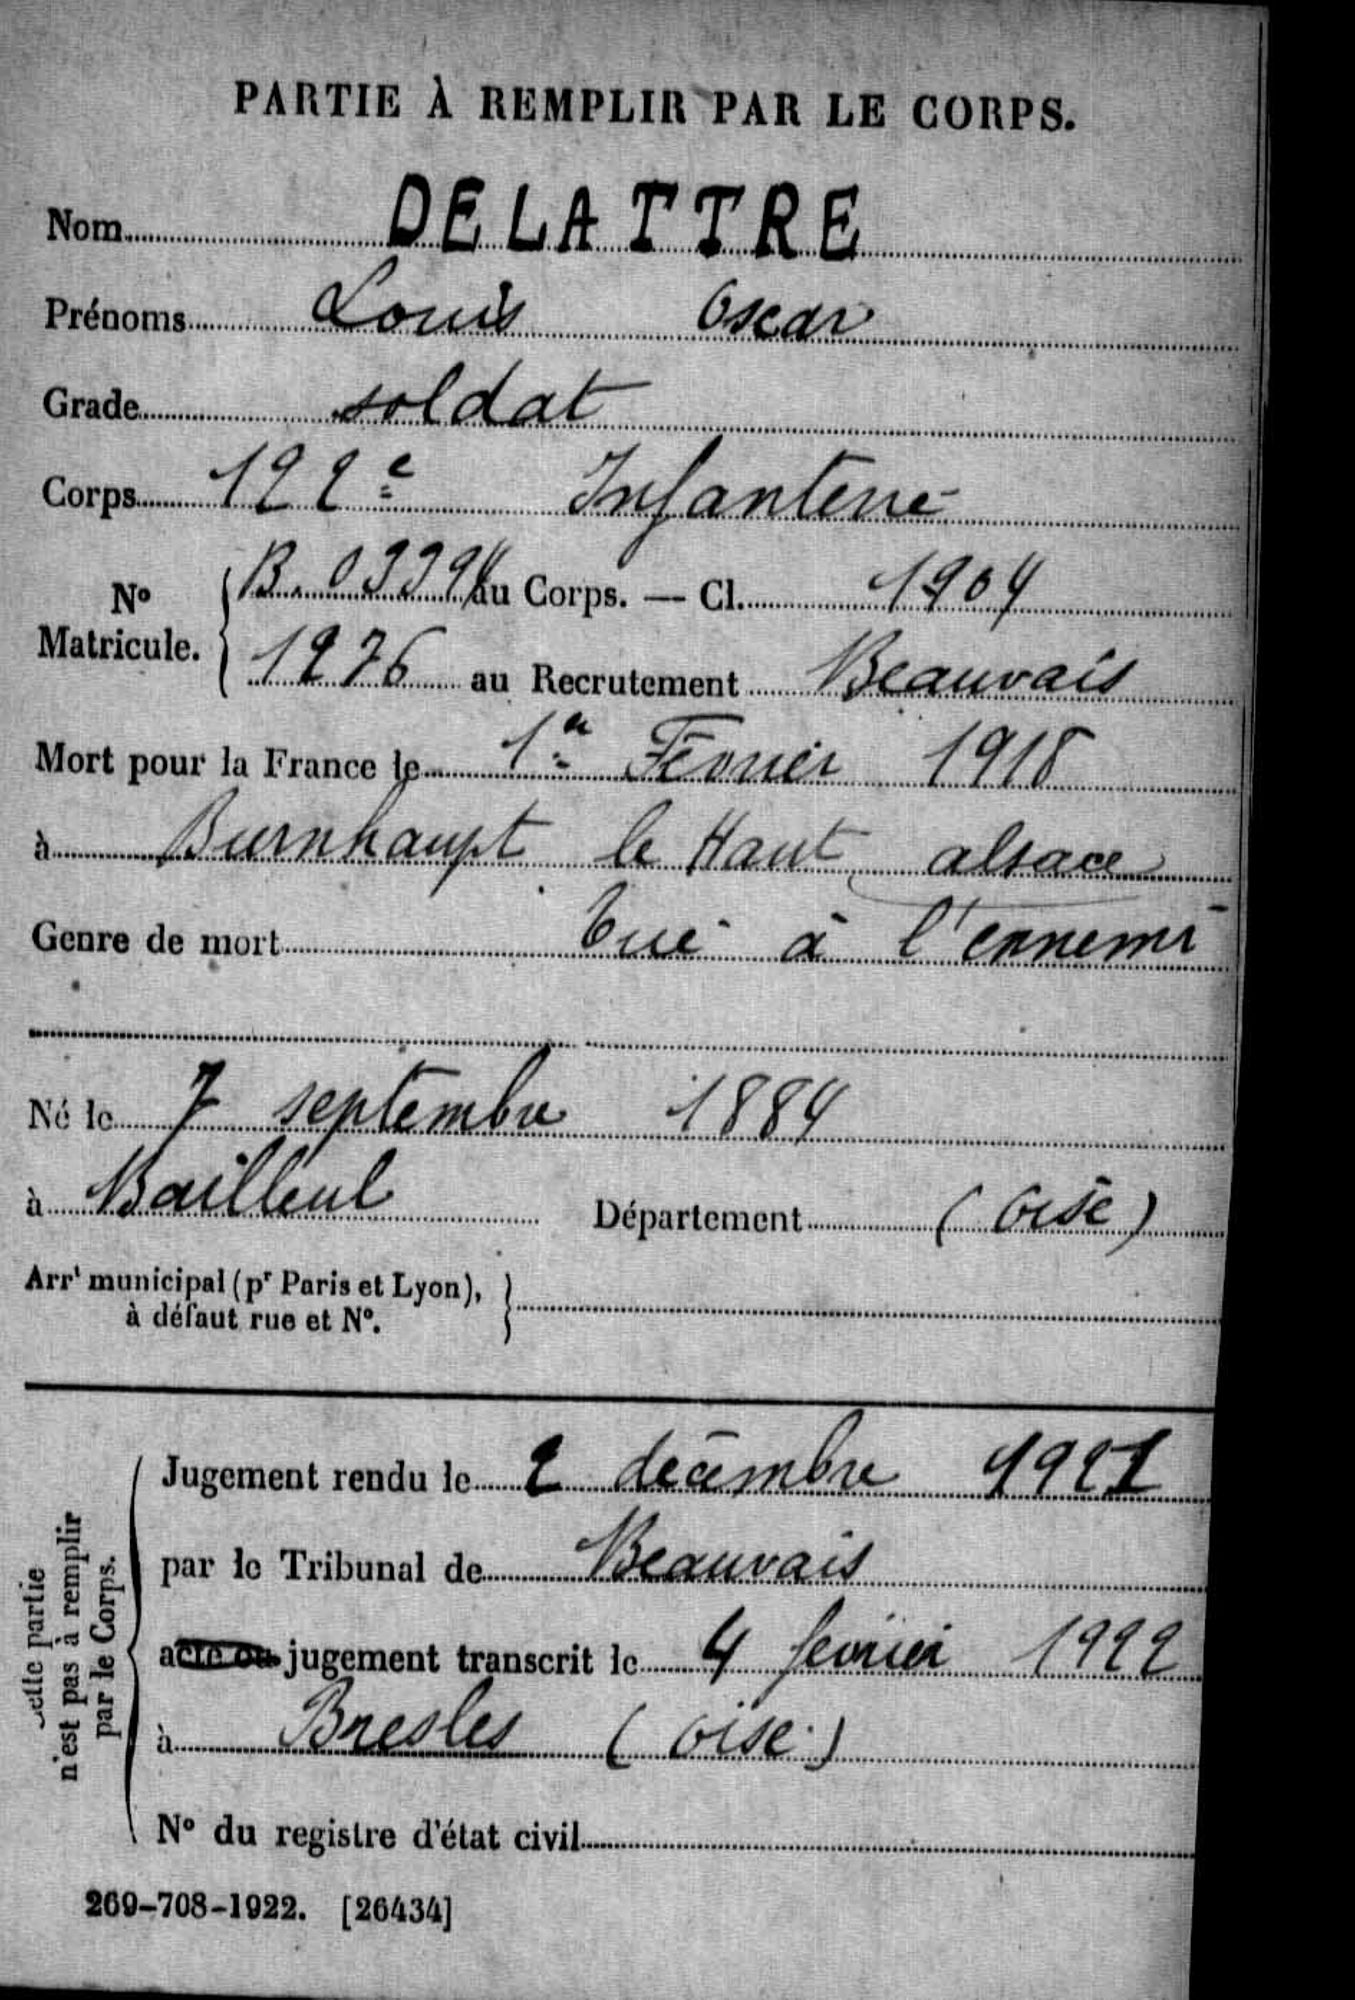 PARTIE À REMPLIR PAR LE CORPS.
Nom DELATTRE
Prénoms Louis Oscar
Grade soldat
Corps 122e Infanterie
N° Matricule. B. 03394 au Corps. — Cl. 1904
1276 au Recrutement Beauvais
Mort pour la France le 1er Février 1918
à Burnhaupt le Haut alsace
Genre de mort tué à l'ennemi
Né le 7 septembre 1884
à Bailleul Département (Oise)
Arrt municipal (pr Paris et Lyon),
à défaut rue et N°.
Cette partie
n'est pas à remplir
par le Corps.
Jugement rendu le 2 décembre 1921
par le Tribunal de Beauvais
acte ou jugement transcrit le 4 février 1922
à Bresles (Oise)
N° du registre d'état civil
269-708-1922. [26434]